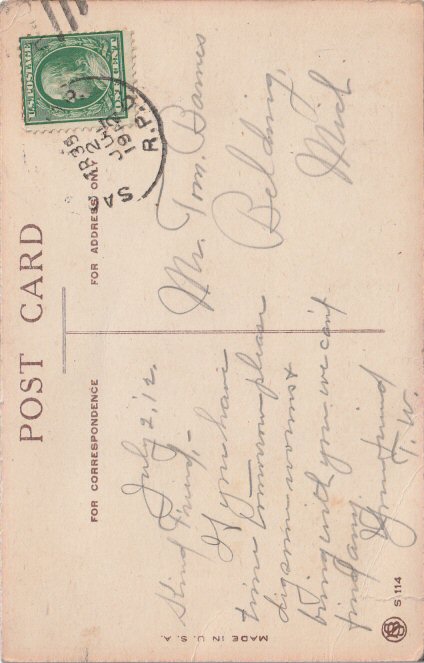 POST CARD
FOR CORRESPONDENCE
FOR ADDRESS ONLY
U.S. POSTAGE
ONE CENT
R.P.O.
July 2, '12.
Kind Friend,-
If you have
time tomorrow please
dig some worms &
bring with you we can't
find any.
Your friend
T. W.
Mr. Tom. Barnes
Belding,
Mich
MADE IN U.S.A.
S 114